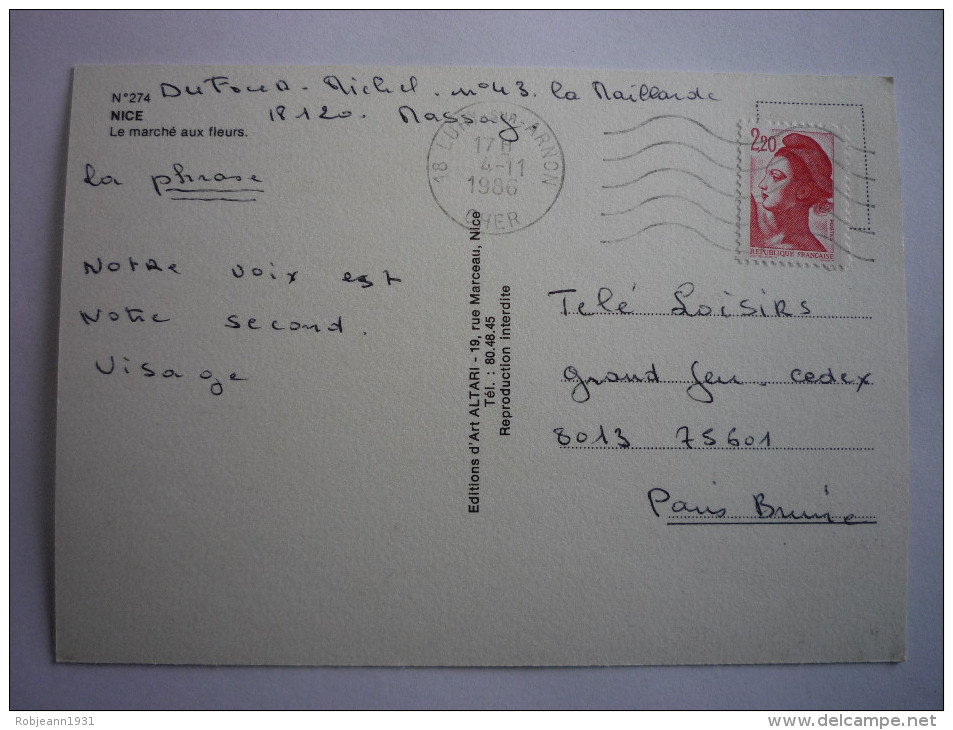 DuFour - Michel . n° 43. la Maillarde
N°274
NICE
18120. Massay
Le marché aux fleurs.
la phrase
Notre voix est
Notre second.
Visage
18 LURY-SUR-ARNON
17H
4-11
1986
CHER
2,20
REPUBLIQUE FRANÇAISE
Editions d'Art ALTARI - 19, rue Marceau, Nice
Tél. : 80.48.45
Reproduction interdite
Telé Loisirs
grand Jeu . cedex
8013 75601
Paris Brune
Robjeann1931
www.delcampe.net